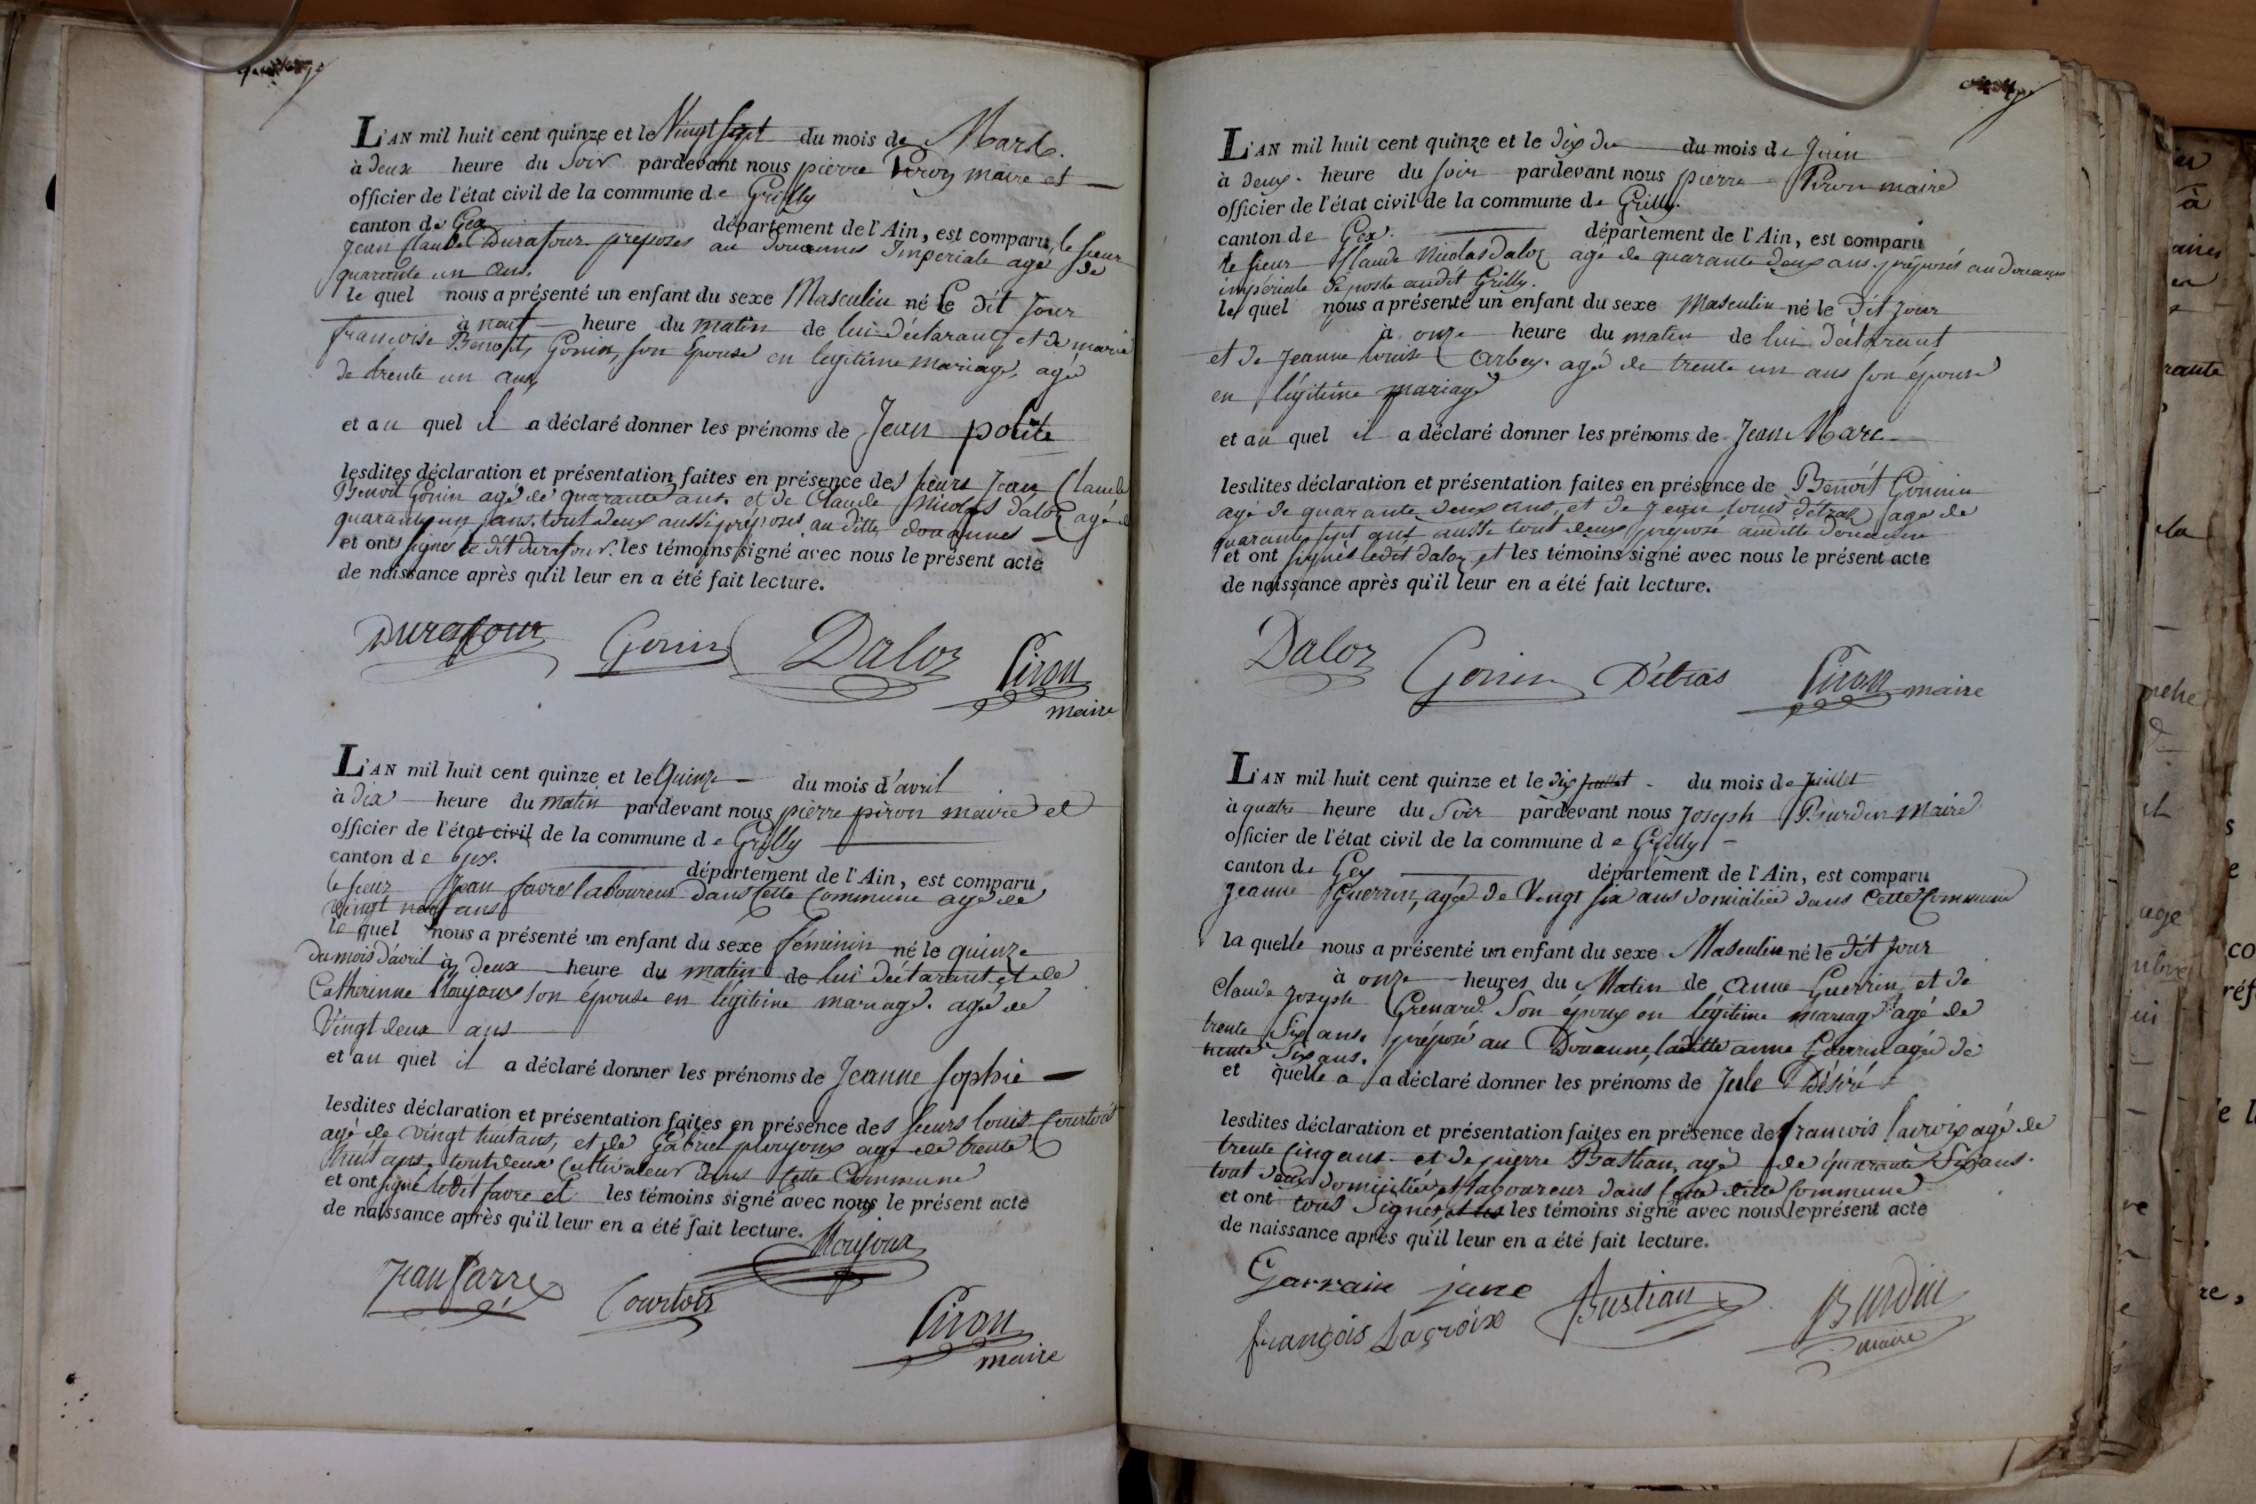 L'AN mil huit cent quinze et le Vingt sept du mois de Mars.
à deux heure du Soir pardevant nous pierre Piron maire et
officier de l'état civil de la commune de Grilly
canton de Gex département de l'Ain, est comparu le sieur
Jean Claude Durafour preposés au douannes Imperiale agé de
quarante un ans.
le quel nous a présenté un enfant du sexe Masculin né le dit Jour
à neuf heure du matin de lui déclarant et de marie
francoise Benoit Gonin, son Épouse en legitime mariage, agé
de trente un ans
et au quel il a déclaré donner les prénoms de Jean polite
lesdites déclaration et présentation faites en présence des sieurs Jean Claude
Benoit Gonin agé de quarante ans. et de Claude Nicolas daloz agé de
quarante un ans. tout deux aussi préposés au ditte douannes
et ont signés le dit durafour. les témoins signé avec nous le présent acte
de naissance après qu'il leur en a été fait lecture.
Durafour Gonin Daloz Piron
maire
L'AN mil huit cent quinze et le Quinze du mois d'avril
à dix heure du matin pardevant nous pierre piron maire et
officier de l'état civil de la commune de Grilly
canton de Gex. département de l'Ain, est comparu
le sieur Jean favre laboureur dans Cette Commune agé de
vingt neuf ans
le quel nous a présenté un enfant du sexe féminin né le quinze
du mois d'avril à deux heure du matin de lui déclarant et de
Catherinne Moujoux son épouse en légitime mariage. agé de
Vingt deux ans
et au quel il a déclaré donner les prénoms de Jeanne Sophie
lesdites déclaration et présentation faites en présence des sieurs louis Courtois
agé de vingt huit ans, et de Gabriel moujoux agé de trente
huit ans. tout deux Cultivateur dans Cette Commune
et ont signé ledit favre et les témoins signé avec nous le présent acte
de naissance après qu'il leur en a été fait lecture.
Moujoux
Jean favre Courtois Piron
maire
L'AN mil huit cent quinze et le dix du mois de Juin
à deux heure du soir pardevant nous pierre Piron maire
officier de l'état civil de la commune de Grilly.
canton de Gex. département de l'Ain, est comparu
le sieur Claude Nicolas daloz agé de quarante deux ans. préposés au douanes
imperiale de poste audit Grilly.
le quel nous a présenté un enfant du sexe Masculin né le Dit Jour
à onze heure du matin de lui Déclarant
et de Jeanne louise Arbey. agé de trente un ans son épouse
en légitime mariage
et au quel il a déclaré donner les prénoms de Jean Marc
lesdites déclaration et présentation faites en présence de Benoit Gonin
agé de quarante deux ans, et de Jean louis détraz agé de
quarante sept ans aussi tout deux préposé auditte Douanne
et ont signés ledit daloz et les témoins signé avec nous le présent acte
de naissance après qu'il leur en a été fait lecture.
Daloz Gonin Détras Piron maire
L'AN mil huit cent quinze et le dix juillet du mois de Juillet
à quatre heure du Soir pardevant nous Joseph Burdin Maire
officier de l'état civil de la commune de Grilly
canton de Gex département de l'Ain, est comparu
Jeanne Guerrin, agée de Vingt six ans domiciliée dans Cette Commune
la quelle nous a présenté un enfant du sexe Masculin né le dit Jour
à onze heures du Matin de anne Guerrin et de
claude Joseph Grenard Son époux en légitime mariage agé de
trente Six ans. préposé au Douanne, laditte anne Guerrin agée de
trente Six ans.
et quelle a a déclaré donner les prénoms de Jule Désiré
lesdites déclaration et présentation faites en présence de francois lacroix agé de
trente Cinq ans. et de pierre Bastian, agé de quarante Six ans.
tout deux domiciliés et laboureur dans Cette ditte Commune
et ont tous Signés, et les les témoins signé avec nous le présent acte
de naissance après qu'il leur en a été fait lecture.
Garrain jane Bastian Burdin
françois Lacroix maire